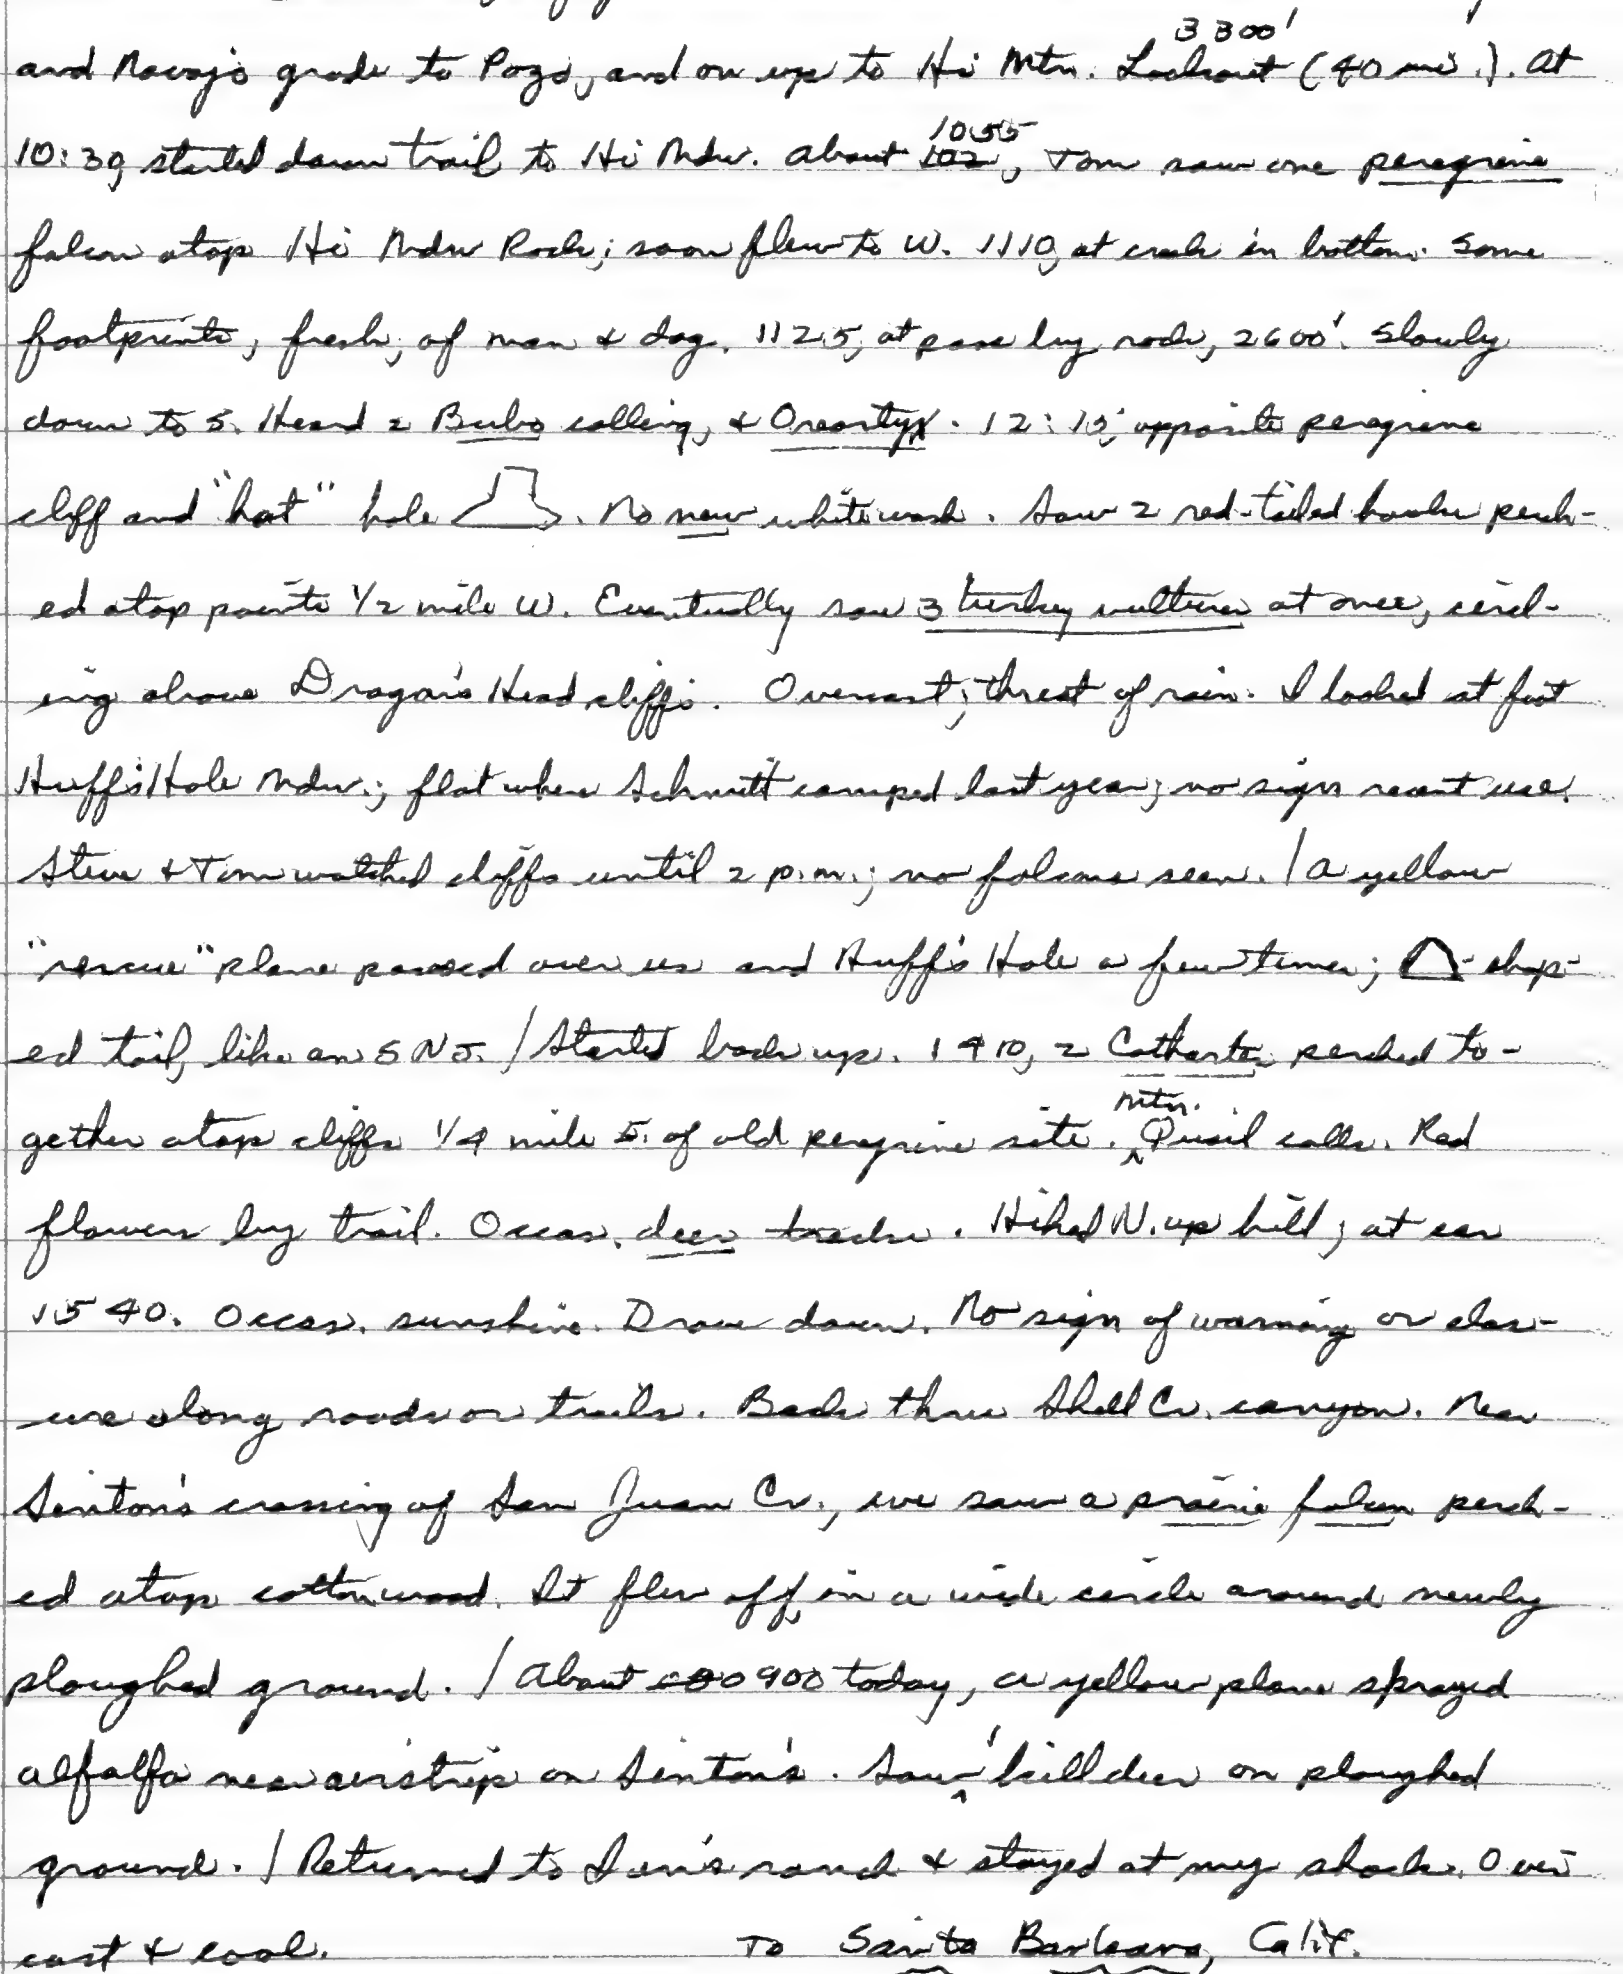 3300'
and Navajo grade to Pozo, and on up to Hi Mtn. Lookout (40 mi.). At
1055
10:30, started down trail to Hi Mdw. About 102, Tom saw one peregrine
falcon atop Hi Mdw Rock; soon flew to W. 1110, at creek in bottom. Some
footprints, fresh, of man & dog. 1125, at pass by rock, 2600'. Slowly
down to S. Heard 2 Bubo calling, & Oreortyx. 12:15, opposite peregrine
cliff and "hat" hole . No new whitewash. Saw 2 red-tailed hawks perch-
ed atop points 1/2 mile W. Eventually saw 3 turkey vultures at once, circl-
ing above Dragon's Head cliffs. Overcast; threat of rain. I looked at foot
Huff's Hole Mdw.; flat where Schmitt camped last year; no sign recent use.
Steve & Tom watched cliffs until 2 p.m.; no falcons seen. / A yellow
"rescue" plane passed over us and Huff's Hole a few times; -shap-
ed tail, like an SNJ. / Started back up. 1410, 2 Cathartes perched to-
mtn.
gether atop cliffs 1/4 mile E. of old peregrine site. ^ Quail calls. Red
flowers by trail. Occas. deer tracks. Hiked N. up hill; at car
1540. Occas. sunshine. Drove down. No sign of warning or clos-
ure along roads or trails. Back thru Shell Cr. canyon. Near
Sinton's crossing of San Juan Cr., we saw a prairie falcon perch-
ed atop cottonwood. It flew off, in a wide circle around newly
ploughed ground. / About 0900 today, a yellow plane sprayed
alfalfa near airstrip on Sinton's. Saw ^ 1 killdeer on ploughed
ground. / Returned to Ian's ranch & stayed at my shack. Over
cast & cool. To Santa Barbara, Calif.